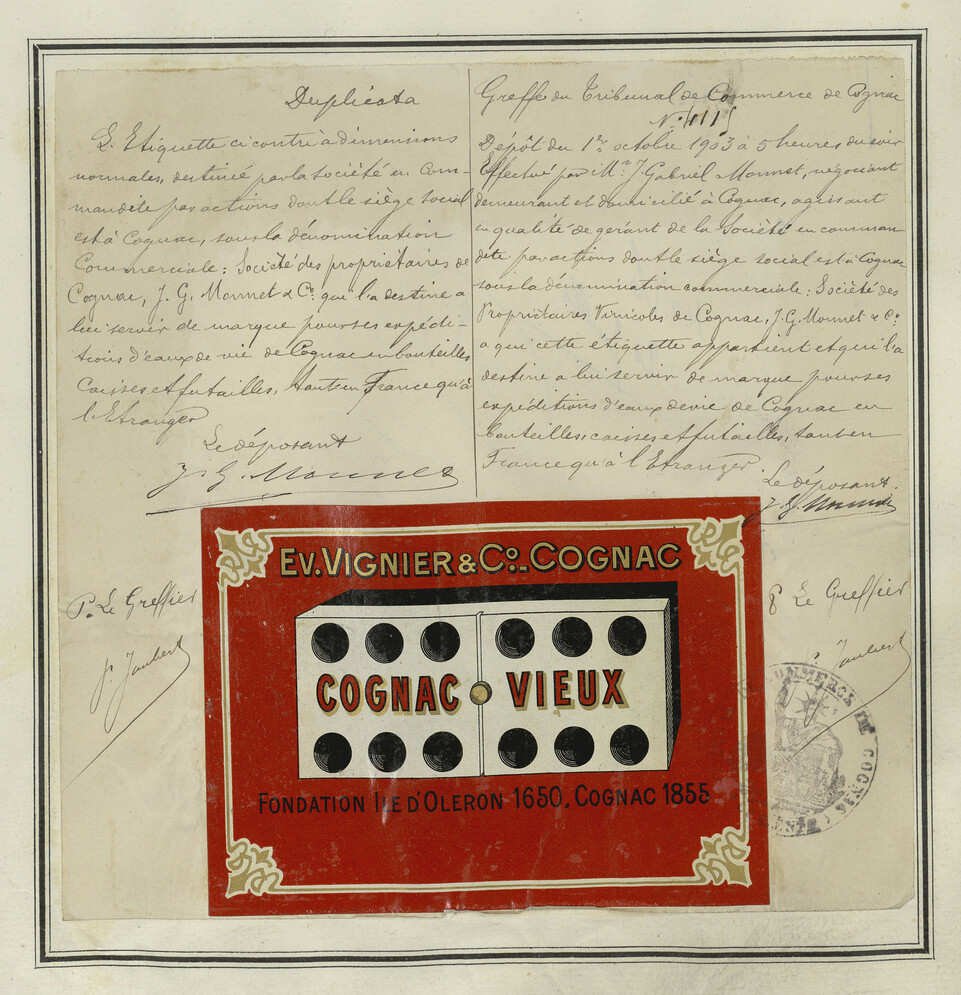 Duplicata
L'Etiquette ci contre à dimensions
normales, destinée par la société en Com-
mandite par actions dont le siège social
est à Cognac, sous la dénomination
Commerciale: Société des propriétaires de
Cognac, J. G. Monnet & Cº qui l'a destine a
lui servir de marque pour ses expédi-
tions d'eaux de vie de Cognac en bouteilles
Caisses et futailles, tant en France qu'à
l'Etranger
Le déposant
J. G. Monnet
P. Le Greffier
Greffe du Tribunal de Commerce de Cognac
Nº 1115
Dépôt du 1er octobre 1903 à 5 heures du soir
Effectué par Mr J. Gabriel Monnet, négociant
demeurant et domicilié à Cognac, agissant
en qualité de gérant de la Société en comman
dite par actions dont le siège social est à Cognac
sous la dénomination commerciale: Société des
Propriétaires Vinicoles de Cognac, J. G. Monnet & Cº
a qui cette étiquette appartient et qui l'a
destine a lui servir de marque pour ses
expéditions d'eaux de vie de Cognac en
bouteilles, caisses et futailles, tant en
France qu'à l'Etranger
Le déposant
J. G. Monnet
P Le Greffier
EV. VIGNIER & Cº_COGNAC
COGNAC VIEUX
FONDATION ILE D'OLERON 1650. COGNAC 1855
COMMERCE DE COGNAC